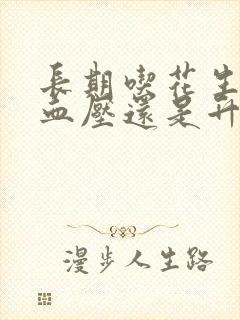 長期喫花生
血壓還是升
漫步人生路